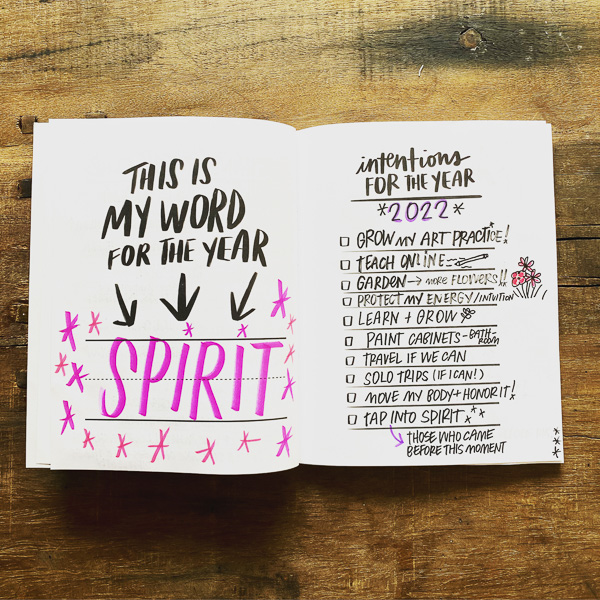 THIS IS
MY WORD
FOR THE YEAR
SPIRIT
intentions
FOR THE YEAR
*2022*
GROW MY ART PRACTICE!
TEACH ONLINE
GARDEN → MORE FLOWERS!!
PROTECT MY ENERGY/INTUITION
LEARN + GROW
PAINT CABINETS - BATH-
ROOM
TRAVEL IF WE CAN
SOLO TRIPS (IF I CAN!)
MOVE MY BODY + HONOR IT!
TAP INTO SPIRIT
THOSE WHO CAME
BEFORE THIS MOMENT